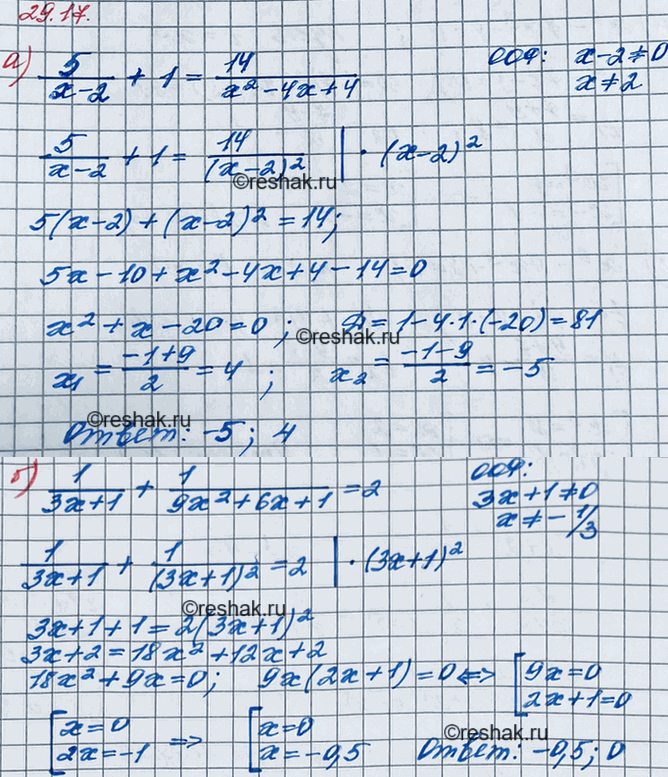 29.17.
а) 5/(x-2) + 1 = 14/(x²-4x+4)   ООФ: x-2≠0
x≠2
5/(x-2) + 1 = 14/(x-2)² | · (x-2)²
©reshak.ru
5(x-2)+(x-2)²=14;
5x-10+x²-4x+4-14=0
x²+x-20=0;   Д=1-4·1·(-20)=81
©reshak.ru
x₁ = (-1+9)/2 = 4;   x₂ = (-1-9)/2 = -5
©reshak.ru
Ответ: -5; 4
б) 1/(3x+1) + 1/(9x²+6x+1) = 2   ООФ:
3x+1≠0
x≠-1/3
1/(3x+1) + 1/(3x+1)² = 2 | · (3x+1)²
©reshak.ru
3x+1+1=2(3x+1)²
3x+2=18x²+12x+2
18x²+9x=0;   9x(2x+1)=0 <=> [9x=0
2x+1=0
[x=0   =>   [x=0
2x=-1   x=-0,5   Ответ: -0,5; 0
©reshak.ru